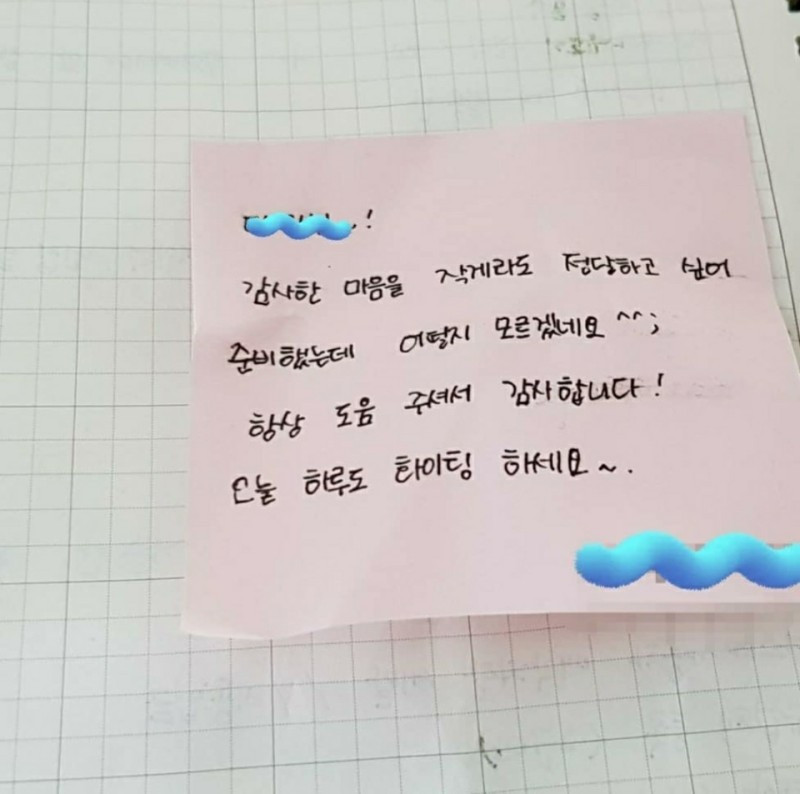 !
감사한 마음을 작게라도 정당하고 싶어
준비했는데 어떨지 모르겠네요 ^^;
항상 도움 주셔서 감사합니다!
오늘 하루도 화이팅 하세요~.